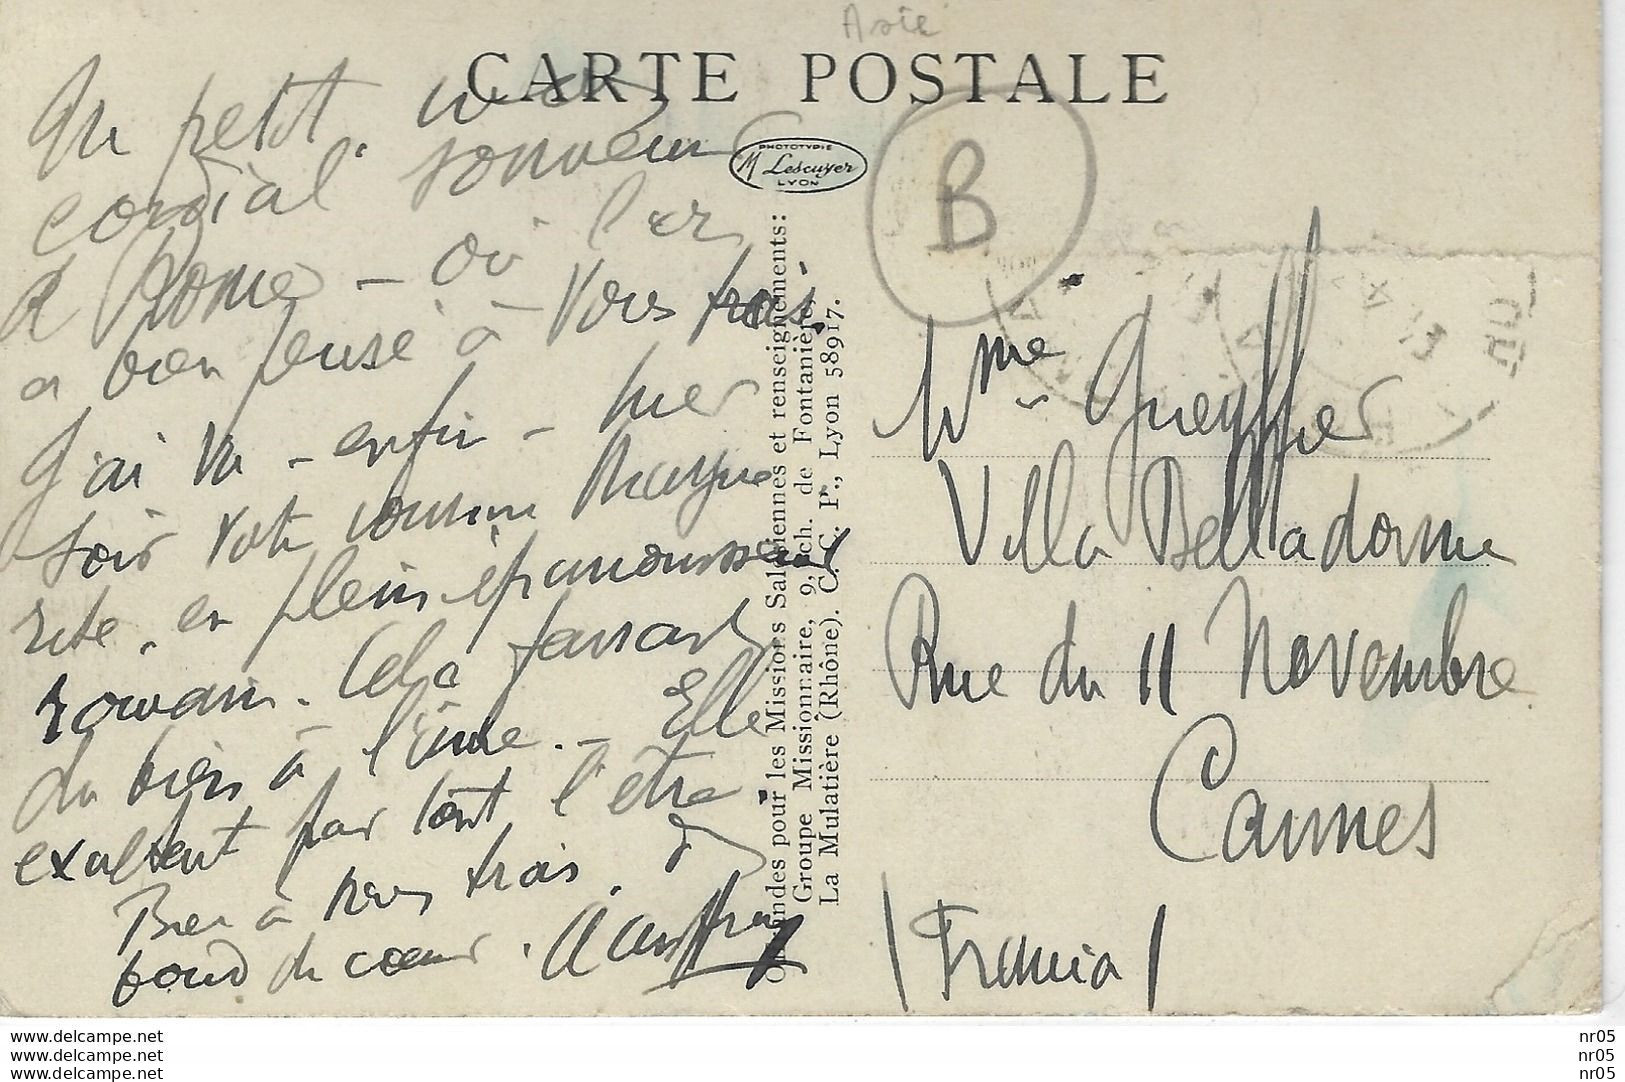 Asie
CARTE POSTALE
Un petit mot
cordial souvenir
à Rome - où l'on
a bien pensé à vous trois.
J'ai vu - enfin - hier
soir votre cousine Margue
rite, en plein épanouissement
romain. Cela faisait
du bien à l'âme. - Elle
exultait par tout l'être
Bien à vous trois, du
fond du cœur.
PHOTOTYPIE
M Lescuyer
LYON
ndes pour les Missions Salésiennes et renseignements:
Groupe Missionnaire, 9, ch. de Fontanière,
La Mulatière (Rhône). C. C. P., Lyon 58917.
B
Mme Gueyffier
Villa Belladonna
Rue du 11 Novembre
Cannes
(Francia)
https://www.delcampe.net
https://www.delcampe.net
https://www.delcampe.net
nr05
nr05
nr05